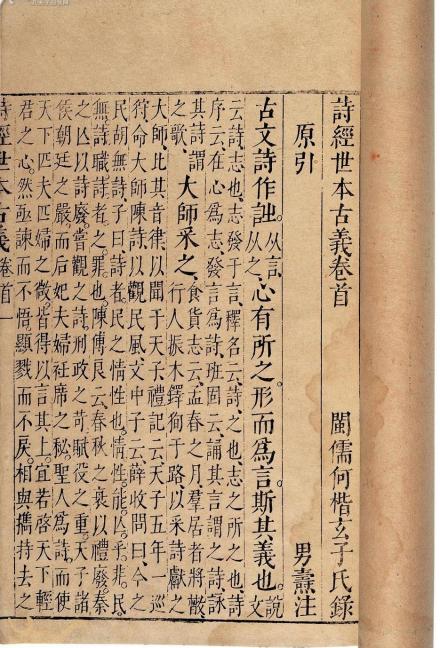 詩經世本古義卷首 閩儒何楷玄子氏錄
原引 男燾注
古文詩作訨。从言、从之、心有所之。形而爲言。斯其義也。說文
云、詩、志也、志發于言、釋名云、詩、之也、志之所之也、詩
序云、在心爲志、發言爲詩、班固云、誦其言謂之詩、詠
其詩謂
之歌、
大師采之、
食貨志云、孟春之月、羣居者將散、
行人振木鐸徇于路以采詩獻之
大師、比其音律、以聞于天子、禮記云、天子五年一巡
狩、命大師陳詩以觀民風、文中子云、薛收問曰、今之
民胡無詩、子曰、詩者民之情性也、情性能亾乎、非民
無詩、職詩者之罪也、陳傅良云、春秋之衰以禮廢、秦
之亾以詩廢、嘗觀之詩、刑政之苛、賦役之重、天子諸
侯朝廷之嚴、而后妃夫婦衽席之秘、聖人爲詩、而使
天下匹夫匹婦之微、皆得以言其上、宜若啓天下輕
君之心、然亟諫而不悟、顯戮而不戾、相與攜持去之
詩經世本古義 卷首 一